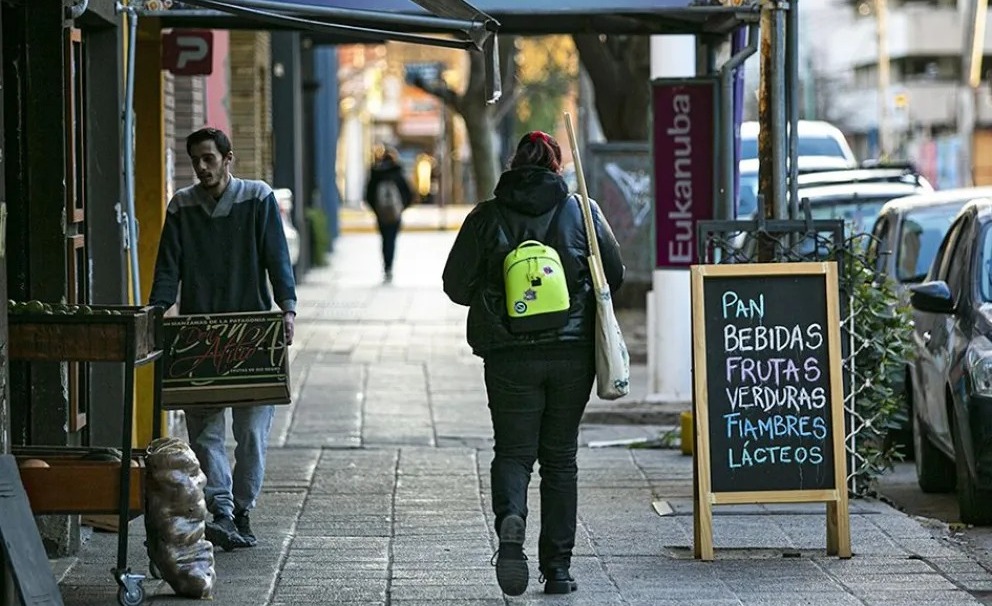 P
Eukanuba
MANZANAS DE LA PATAGONIA
PAN
BEBIDAS
FRUTAS
VERDURAS
FIAMBRES
LÁCTEOS